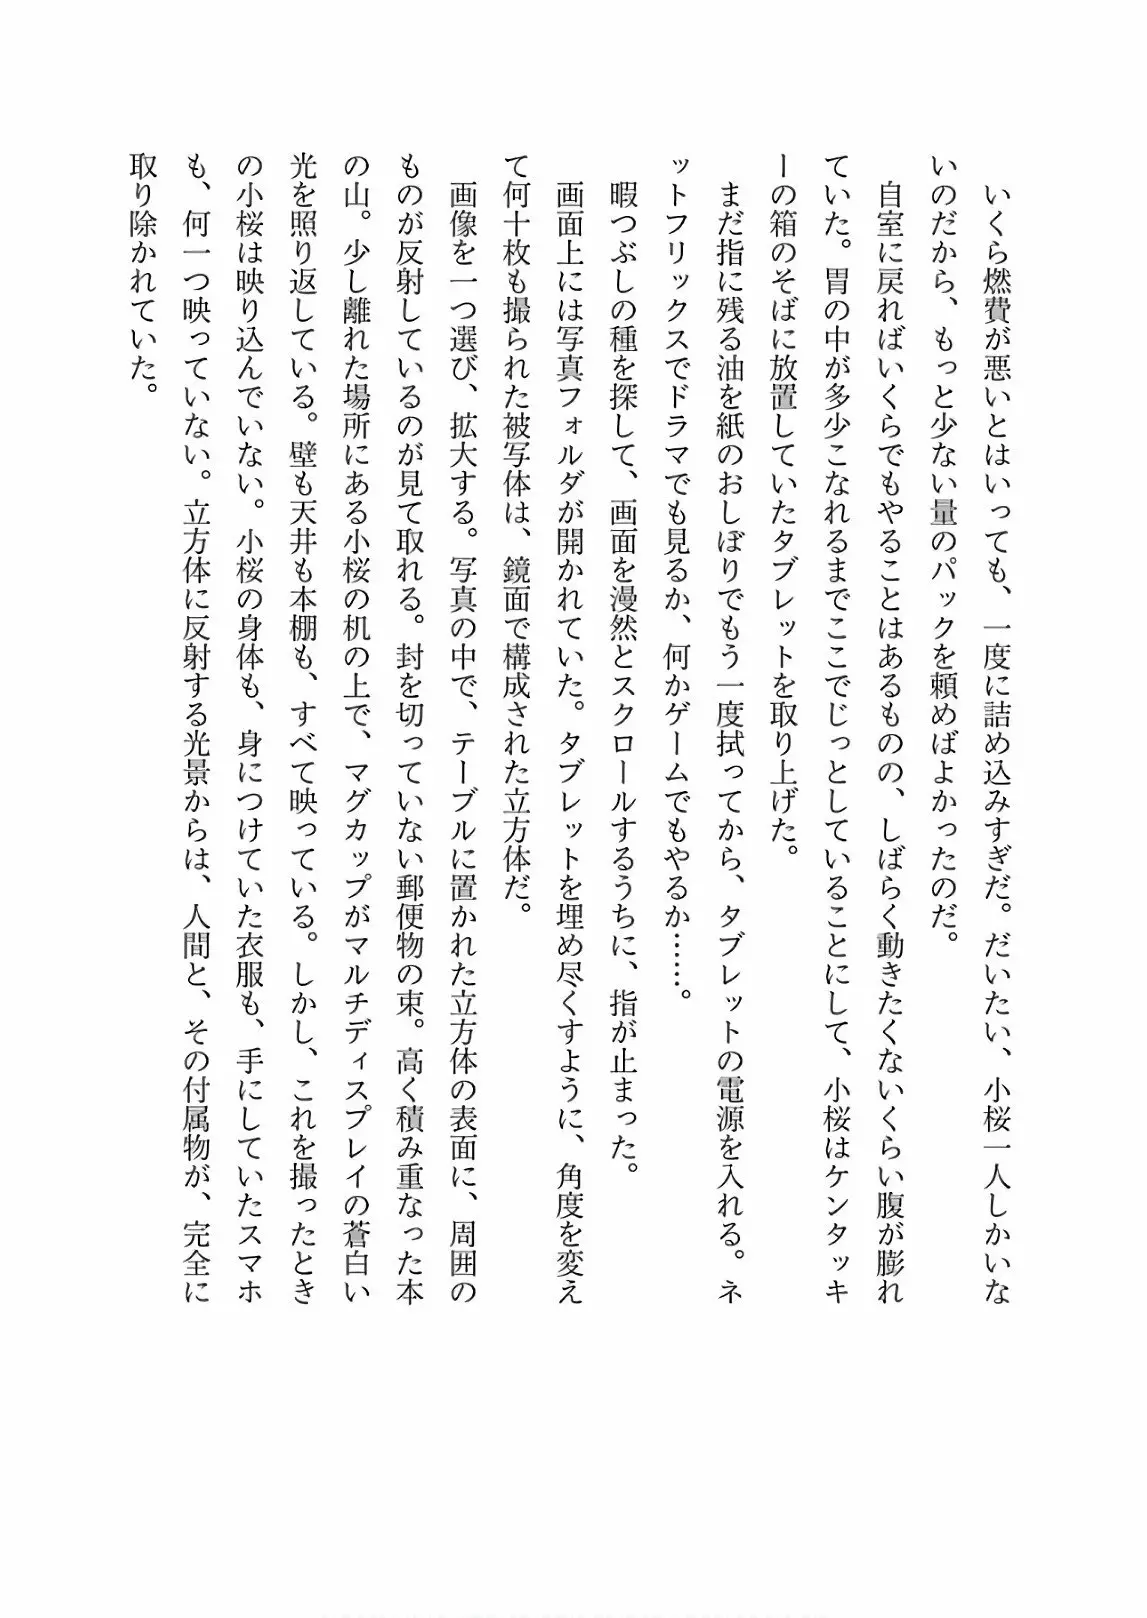 いくら燃費が悪いとはいっても、一度に詰め込みすぎだ。だいたい、小桜一人しかいな
いのだから、もっと少ない量のパックを頼めばよかったのだ。
　自室に戻ればいくらでもやることはあるものの、しばらく動きたくないくらい腹が膨れ
ていた。胃の中が多少こなれるまでここでじっとしていることにして、小桜はケンタッキ
ーの箱のそばに放置していたタブレットを取り上げた。
　まだ指に残る油を紙のおしぼりでもう一度拭ってから、タブレットの電源を入れる。ネ
ットフリックスでドラマでも見るか、何かゲームでもやるか……。
　暇つぶしの種を探して、画面を漫然とスクロールするうちに、指が止まった。
　画面上には写真フォルダが開かれていた。タブレットを埋め尽くすように、角度を変え
て何十枚も撮られた被写体は、鏡面で構成された立方体だ。
　画像を一つ選び、拡大する。写真の中で、テーブルに置かれた立方体の表面に、周囲の
ものが反射しているのが見て取れる。封を切っていない郵便物の束。高く積み重なった本
の山。少し離れた場所にある小桜の机の上で、マグカップがマルチディスプレイの蒼白い
光を照り返している。壁も天井も本棚も、すべて映っている。しかし、これを撮ったとき
の小桜は映り込んでいない。小桜の身体も、身につけていた衣服も、手にしていたスマホ
も、何一つ映っていない。立方体に反射する光景からは、人間と、その付属物が、完全に
取り除かれていた。